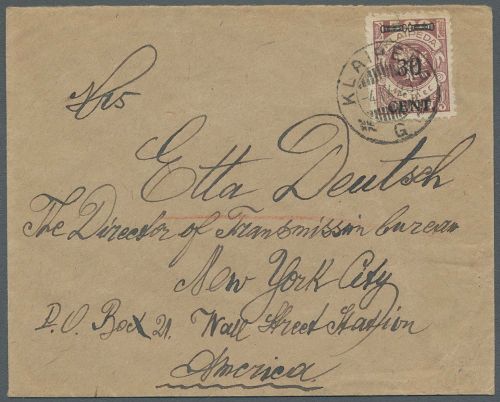 KLAIPEDA
30
CENT.
KLAIPE
G
Mrs
Etta Deutsch
The Director of Transmission bureau
New York City
P.O. Box 21. Wall Street Station
America